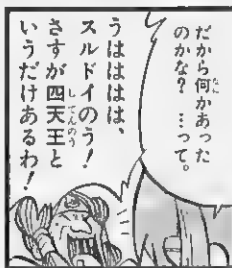 だから何かあった
のかな？…って。
うはははは、
スルドイのう！
さすが四天王と
いうだけあるわ！